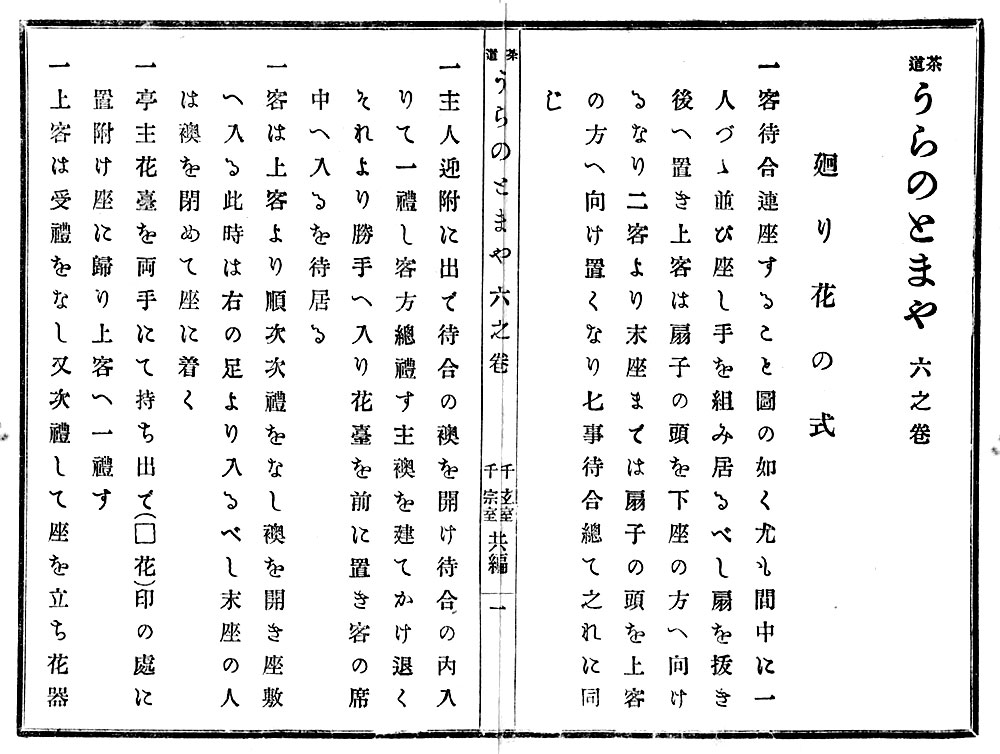 茶道 うらのとまや 六之卷
廻り花の式
一客待合連座すること圖の如く尤も間中に一
人づゝ並び座し手を組み居るべし扇を拔き
後へ置き上客は扇子の頭を下座の方へ向け
るなり二客より末座までは扇子の頭を上客
の方へ向け置くなり七事待合總て之れに同
じ
茶道 うらのとまや 六之卷 千玄室 千宗室 共編 一
一主人迎附に出で待合の襖を開け待合の內入
りて一禮し客方總禮す主襖を建てかけ退く
それより勝手へ入り花臺を前に置き客の席
中へ入るを待居る
一客は上客より順次次禮をなし襖を開き座敷
へ入る此時は右の足より入るべし末座の人
は襖を閉めて座に着く
一亭主花臺を両手にて持ち出で(□花)印の處に
置附け座に歸り上客へ一禮す
一上客は受禮をなし又次禮して座を立ち花器